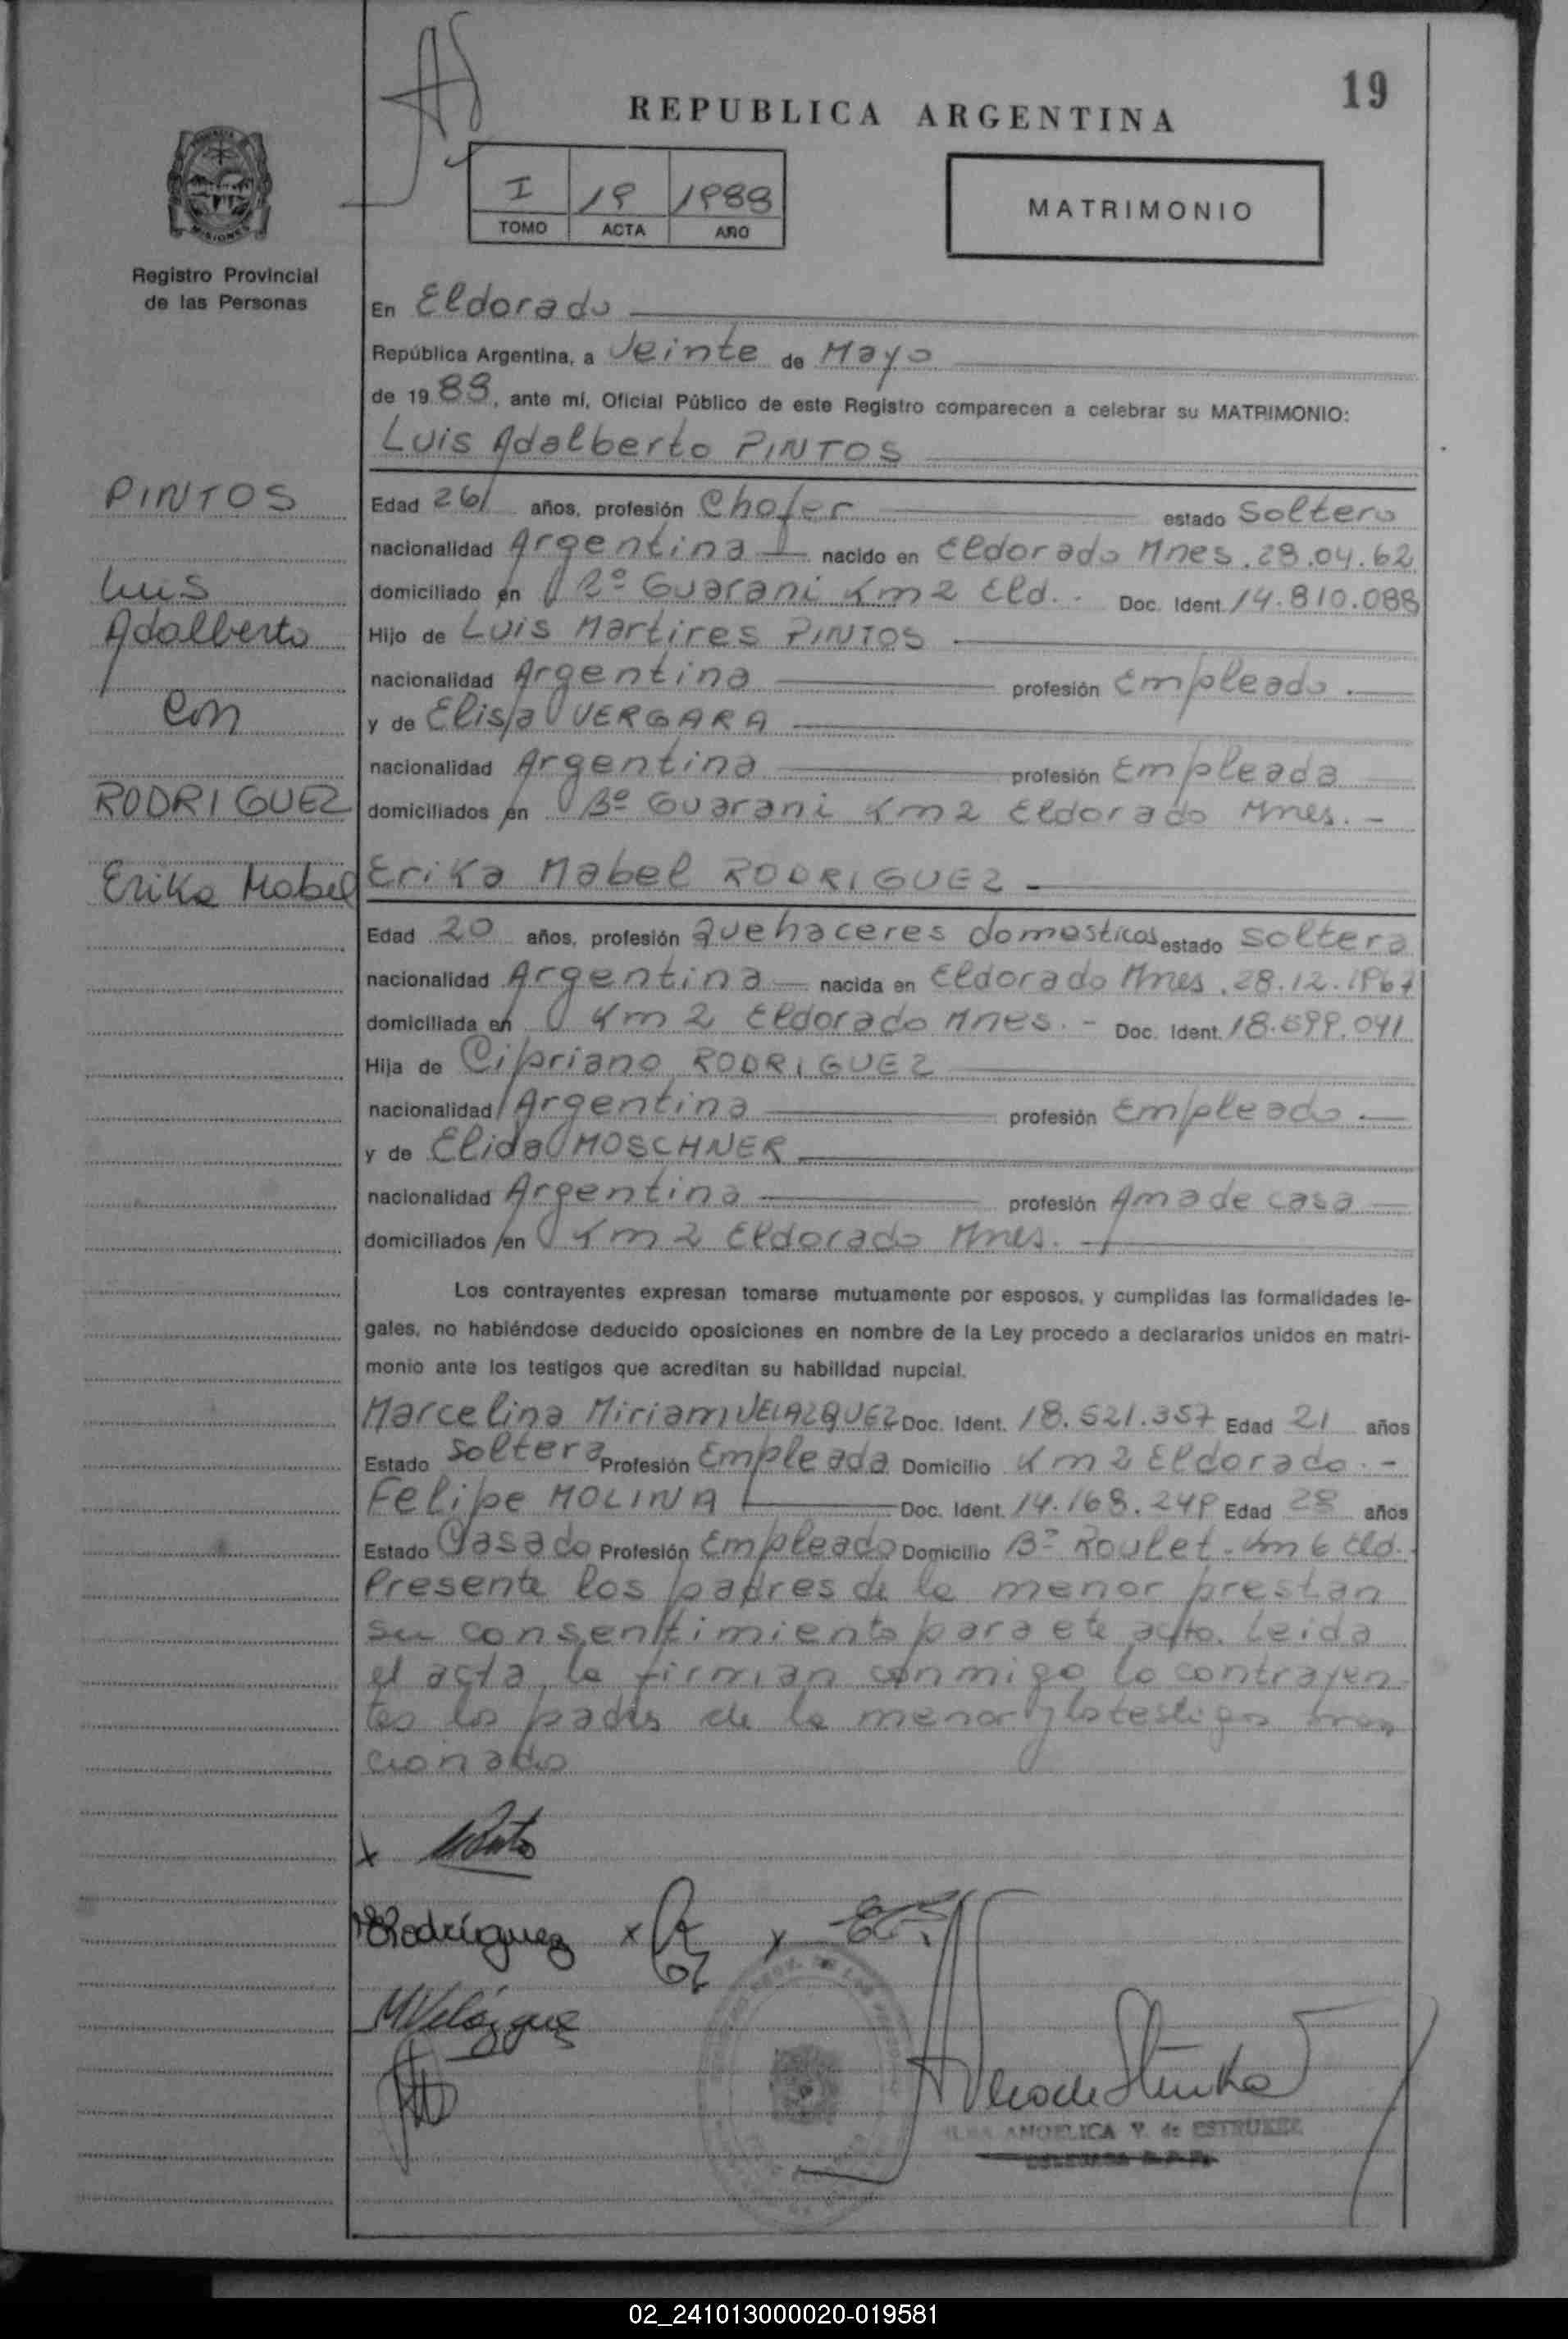 19
REPUBLICA ARGENTINA
I 19 1988
TOMO ACTA AÑO
MATRIMONIO
MISIONES
Registro Provincial
de las Personas
En Eldorado
República Argentina, a Veinte de Mayo
de 19 88, ante mí, Oficial Público de este Registro comparecen a celebrar su MATRIMONIO:
Luis Adalberto PINTOS
PINTOS
Luis
Adalberto
con
RODRIGUEZ
Erika Mabel
Edad 26 años, profesión Chofer estado Soltero
nacionalidad Argentina nacido en Eldorado Mnes. 28.04.62
domiciliado en Bº Guarani Km 2 Eld. Doc. Ident. 14.810.088
Hijo de Luis Martires PINTOS
nacionalidad Argentina profesión Empleado.
y de Elisa VERGARA
nacionalidad Argentina profesión Empleada
domiciliados en Bº Guarani Km 2 Eldorado Mnes. -
Erika Mabel RODRIGUEZ -
Edad 20 años, profesión quehaceres domesticos estado soltera
nacionalidad Argentina nacida en Eldorado Mnes. 28.12.1967
domiciliada en Km 2 Eldorado Mnes. - Doc. Ident. 18.599.041
Hija de Cipriano RODRIGUEZ
nacionalidad Argentina profesión Empleado.
y de Elida MOSCHNER
nacionalidad Argentina profesión Ama de casa
domiciliados en Km 2 Eldorado Mnes.
Los contrayentes expresan tomarse mutuamente por esposos, y cumplidas las formalidades le-
gales, no habiéndose deducido oposiciones en nombre de la Ley procedo a declararlos unidos en matri-
monio ante los testigos que acreditan su habilidad nupcial.
Marcelina Miriam VELAZQUEZ Doc. Ident. 18.521.357 Edad 21 años
Estado soltera Profesión Empleada Domicilio Km 2 Eldorado. -
Felipe MOLINA Doc. Ident. 14.168.249 Edad 28 años
Estado Casado Profesión Empleado Domicilio Bº Roulet - Km 6 Eld.
Presente los padres de la menor prestan
su consentimiento para ete acto. Leida
el acta, la firman conmigo lo contrayen
tes los padres de la menor y lo testigos men
cionado
Rodriguez
MVelázquez
ANGELICA V. de ESTRUKEL
02_241013000020-019581